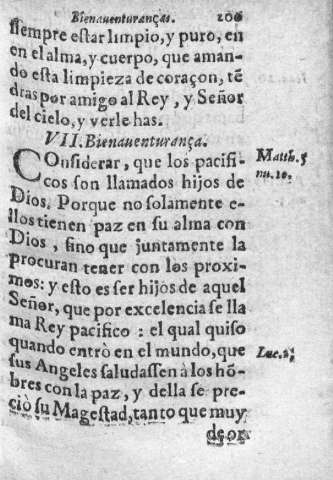 Bienauenturanças. 206
siempre estar limpio, y puro, en
en el alma, y cuerpo, que aman-
do esta limpieza de coraçon, tẽ
dras por amigo al Rey, y Señor
del cielo, y verle has.
VII. Bienauenturança.
COnsiderar, que los pacifi-
cos son llamados hijos de
Dios. Porque no solamente e-
llos tienen paz en su alma con
Dios, sino que juntamente la
procuran tener con los proxi-
mos: y esto es ser hijos de aquel
Señor, que por excelencia se lla
ma Rey pacifico: el qual quiso
quando entrò en el mundo, que
sus Angeles saludassen à los hõ-
bres con la paz, y della se pre-
ciò su Magestad, tanto que muy
de or
Matth. 5
nu. 10.
Luc. 2.